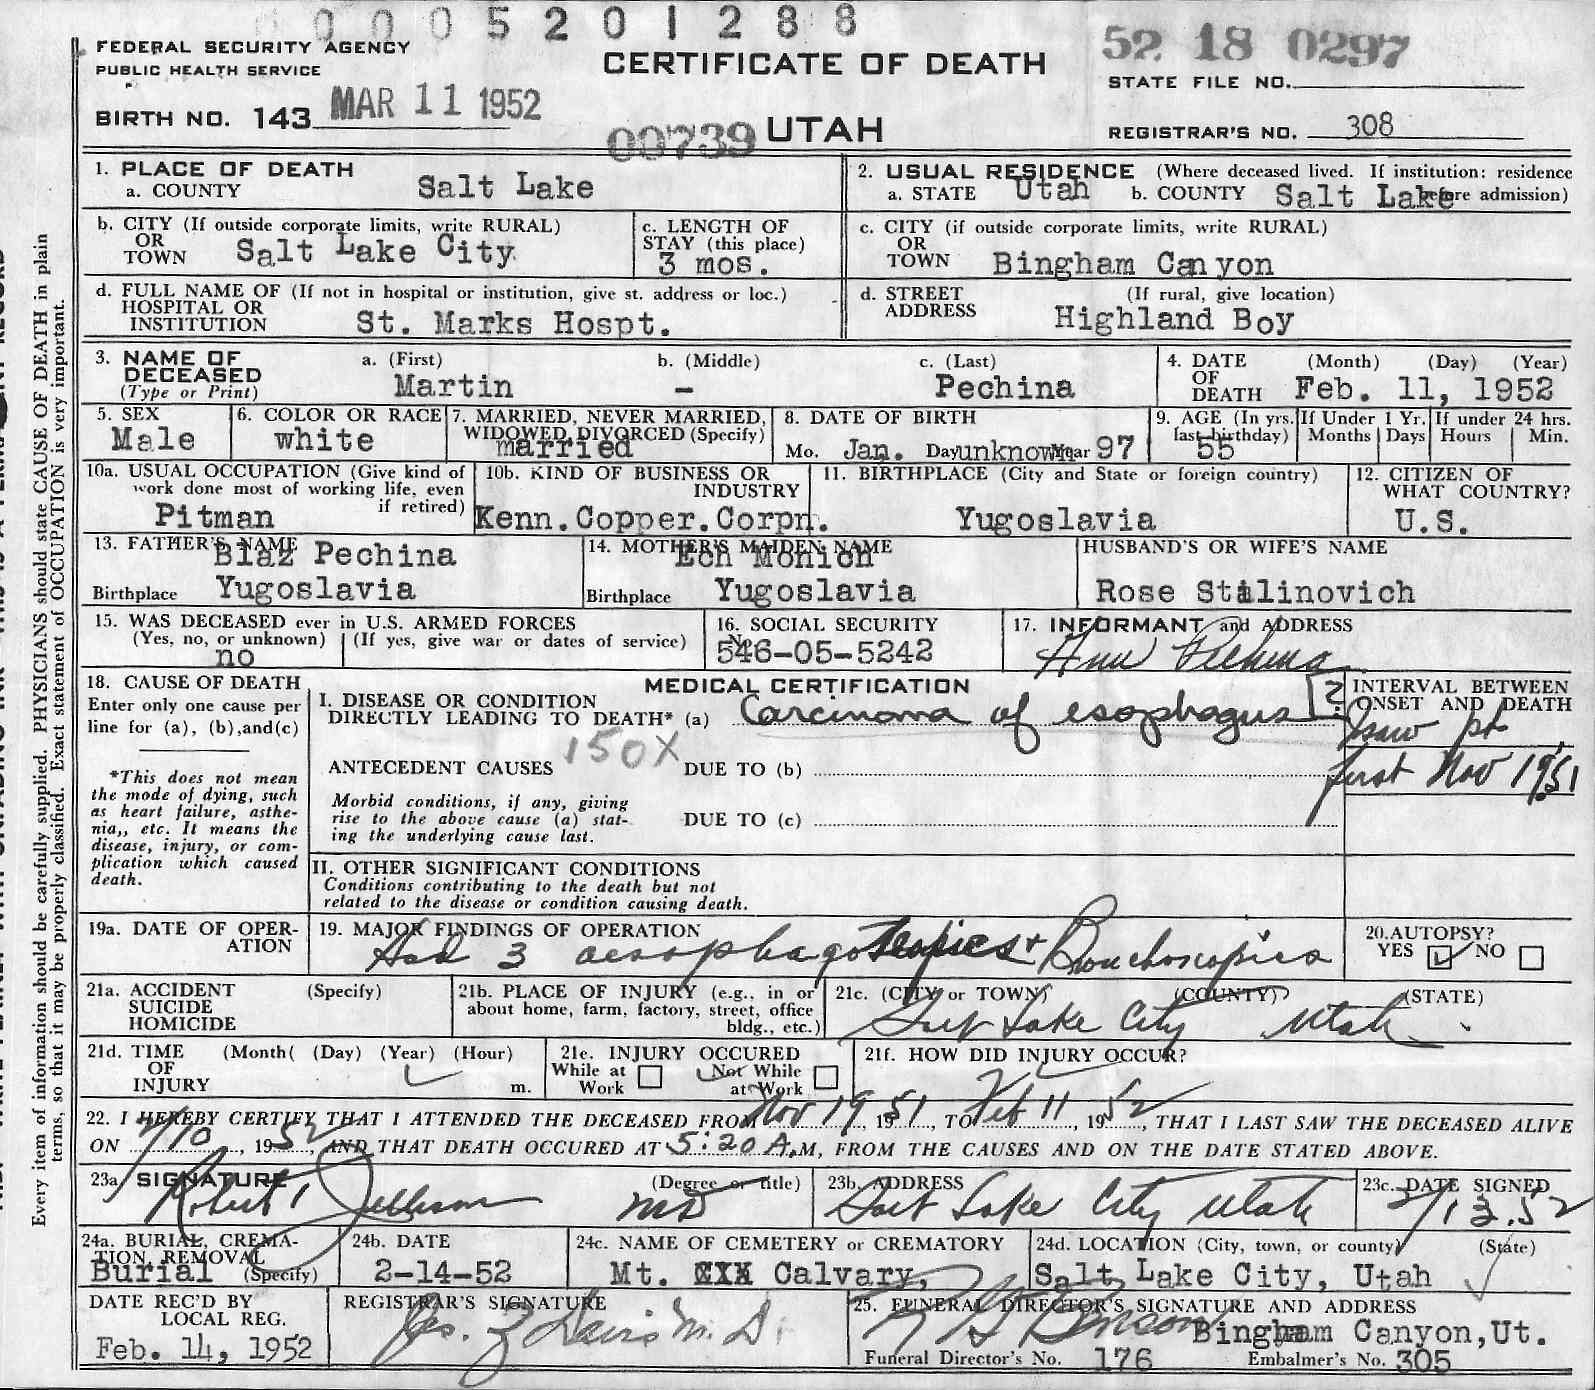 0005201288
FEDERAL SECURITY AGENCY
PUBLIC HEALTH SERVICE
CERTIFICATE OF DEATH
52 18 0297
STATE FILE NO.
BIRTH NO. 143 MAR 11 1952
00739 UTAH
REGISTRAR'S NO. 308
1. PLACE OF DEATH
a. COUNTY Salt Lake
2. USUAL RESIDENCE (Where deceased lived. If institution: residence before admission)
a. STATE Utah b. COUNTY Salt Lake
b. CITY (If outside corporate limits, write RURAL)
OR
TOWN Salt Lake City
c. LENGTH OF
STAY (this place)
3 mos.
c. CITY (if outside corporate limits, write RURAL)
OR
TOWN Bingham Canyon
d. FULL NAME OF (If not in hospital or institution, give st. address or loc.)
HOSPITAL OR
INSTITUTION St. Marks Hospt.
d. STREET (If rural, give location)
ADDRESS Highland Boy
3. NAME OF
DECEASED
(Type or Print)
a. (First) b. (Middle) c. (Last)
Martin - Pechina
4. DATE (Month) (Day) (Year)
OF
DEATH Feb. 11, 1952
5. SEX
Male
6. COLOR OR RACE
white
7. MARRIED, NEVER MARRIED,
WIDOWED, DIVORCED (Specify)
married
8. DATE OF BIRTH
Mo. Jan. Day unknown Year 97
9. AGE (In yrs.
last birthday)
55
If Under 1 Yr.
Months Days
If under 24 hrs.
Hours Min.
10a. USUAL OCCUPATION (Give kind of
work done most of working life, even
if retired)
Pitman
10b. KIND OF BUSINESS OR
INDUSTRY
Kenn.Copper.Corpn.
11. BIRTHPLACE (City and State or foreign country)
Yugoslavia
12. CITIZEN OF
WHAT COUNTRY?
U.S.
13. FATHER'S NAME
Blaz Pechina
Birthplace Yugoslavia
14. MOTHER'S MAIDEN NAME
Ech Monich
Birthplace Yugoslavia
HUSBAND'S OR WIFE'S NAME
Rose Stalinovich
15. WAS DECEASED ever in U.S. ARMED FORCES
(Yes, no, or unknown) (If yes, give war or dates of service)
no
16. SOCIAL SECURITY
No.
546-05-5242
17. INFORMANT and ADDRESS
Ann Pechina
18. CAUSE OF DEATH
Enter only one cause per
line for (a), (b),and(c)
*This does not mean
the mode of dying, such
as heart failure, asthe-
nia,, etc. It means the
disease, injury, or com-
plication which caused
death.
MEDICAL CERTIFICATION
I. DISEASE OR CONDITION
DIRECTLY LEADING TO DEATH* (a) Carcinoma of esophagus ?
150X
ANTECEDENT CAUSES DUE TO (b)
Morbid conditions, if any, giving
rise to the above cause (a) stat-
ing the underlying cause last.
DUE TO (c)
INTERVAL BETWEEN
ONSET AND DEATH
I saw pt
first Nov 1951
II. OTHER SIGNIFICANT CONDITIONS
Conditions contributing to the death but not
related to the disease or condition causing death.
19a. DATE OF OPER-
ATION
19. MAJOR FINDINGS OF OPERATION
Had 3 aesophagoscopics + Bronchoscopies
20.AUTOPSY?
YES NO
21a. ACCIDENT (Specify)
SUICIDE
HOMICIDE
21b. PLACE OF INJURY (e.g., in or
about home, farm, factory, street, office
bldg., etc.)
21c. (CITY or TOWN) (COUNTY) (STATE)
Salt Lake City Utah
21d. TIME (Month( (Day) (Year) (Hour)
OF
INJURY m.
21e. INJURY OCCURED
While at Not While
Work at Work
21f. HOW DID INJURY OCCUR?
22. I HEREBY CERTIFY THAT I ATTENDED THE DECEASED FROM Nov 19, 1951, TO Feb 11, 1952, THAT I LAST SAW THE DECEASED ALIVE
ON 2/10, 1952, AND THAT DEATH OCCURED AT 5:20 A.M, FROM THE CAUSES AND ON THE DATE STATED ABOVE.
23a SIGNATURE (Degree or title)
Robert MD
23b. ADDRESS
Salt Lake City Utah
23c. DATE SIGNED
2/13.52
24a. BURIAL, CREMA-
TION, REMOVAL
(Specify)
Burial
24b. DATE
2-14-52
24c. NAME OF CEMETERY or CREMATORY
Mt. Calvary,
24d. LOCATION (City, town, or county) (State)
Salt Lake City, Utah
DATE REC'D BY
LOCAL REG.
Feb. 14, 1952
REGISTRAR'S SIGNATURE
Jas. Z Davis M. D.
25. FUNERAL DIRECTOR'S SIGNATURE AND ADDRESS
Benson Bingham Canyon,Ut.
Funeral Director's No. 176 Embalmer's No. 305
Every item of information should be carefully supplied. PHYSICIANS should state CAUSE OF DEATH in plain
terms, so that it may be properly classified. Exact statement of OCCUPATION is very important.